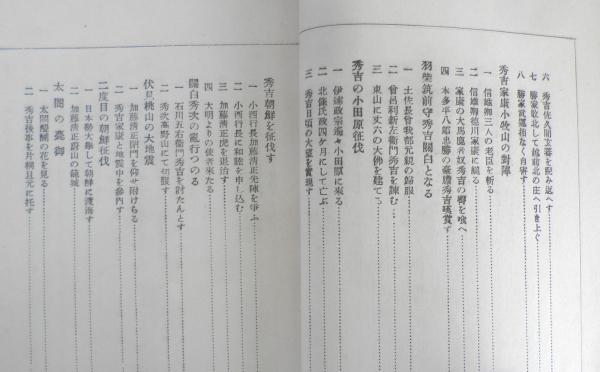 六 秀吉佐久間玄蕃を睨み返へす
七 勝家敗北して越前北の庄へ引き上ぐ
八 勝家武運拙なく自害す
秀吉家康小牧山の對陣
一 信雄卿三人の老臣を斬る
二 信雄卿徳川家康に縋る
三 家康の大馬鹿者奴秀吉の臀を喰へ
四 本多平八郎忠勝の豪膽秀吉感賞す
羽柴筑前守秀吉關白となる
一 土佐長曾我部元親の歸服
二 曾呂利新左衞門秀吉を諫む
三 東山に丈六の大佛を建てる
秀吉の小田原征伐
一 伊達政宗遙々小田原に來る
二 北條氏政四ケ月にして亡ぶ
三 秀吉日頃の大望を實現す
秀吉朝鮮を征伐す
一 小西行長加藤清正先陣を爭ふ
二 小西行長に和睦を申し込む
三 加藤清正虎を退治す
四 大明よりの使者來たる
關白秀次の亂行つのる
一 石川五右衞門秀吉を討たんとす
二 秀次高野山にて切腹す
伏見桃山の大地震
一 加藤清正閉門を仰せ附けらる
二 秀吉家康と地震中を參內す
二度目の朝鮮征伐
一 日本勢大擧して朝鮮に渡海す
二 加藤清正蔚山の籠城
太閤の薨御
一 太閤醍醐の花を見る
二 秀吉後事を片桐且元に托す